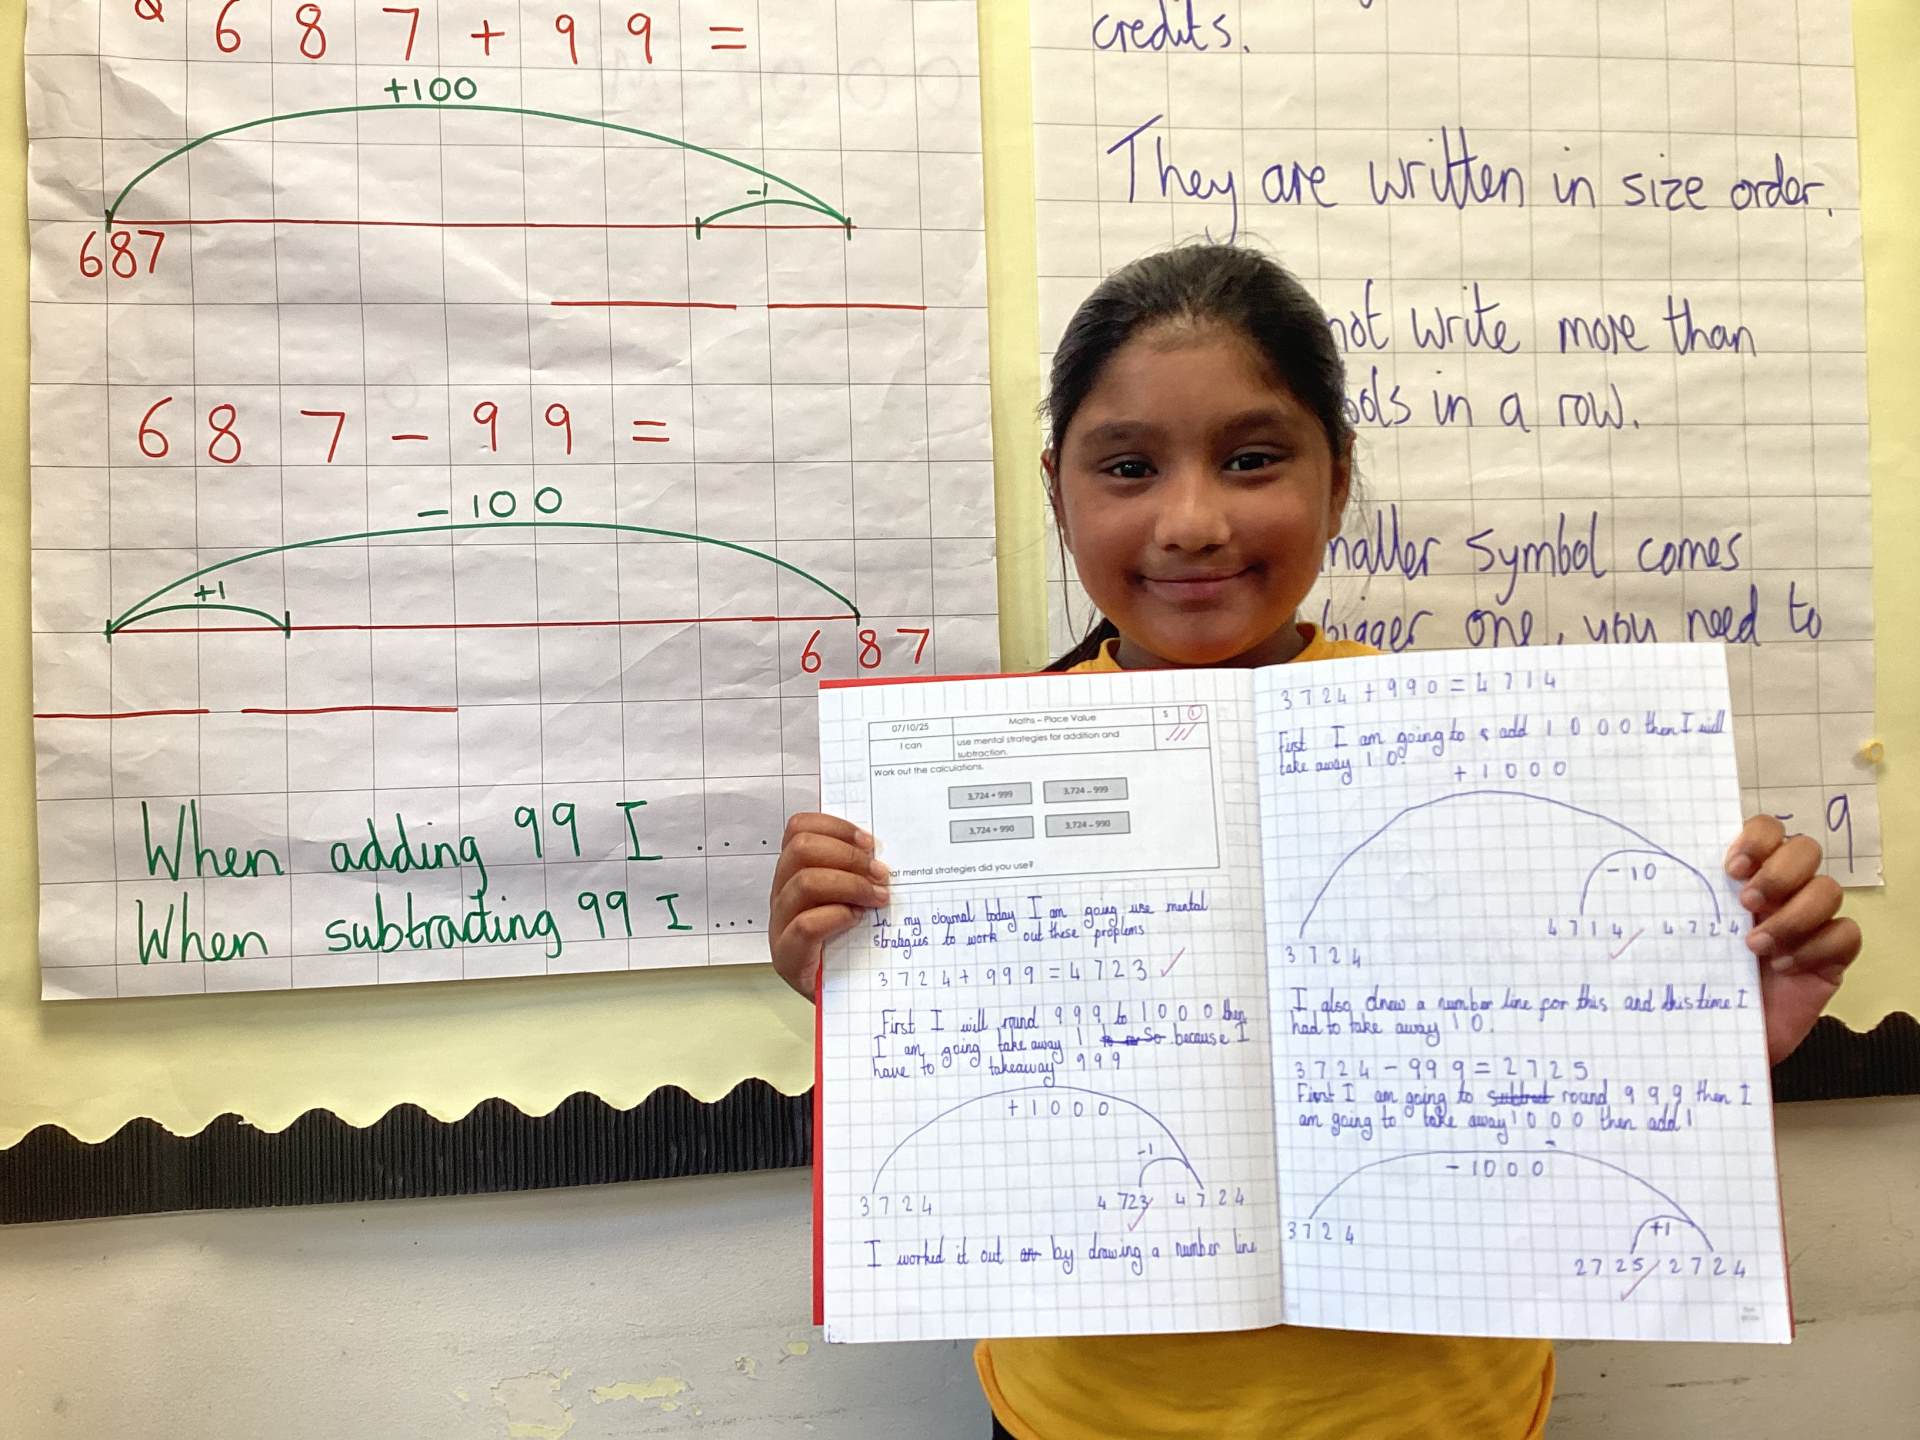 687 + 99 =
+100
-1
687
687 - 99 =
-100
+1
687
When adding 99 I ....
When subtracting 99 I ...
credits.
They are written in size order.
not write more than
in a row.
smaller symbol comes
bigger one, you need to
= 9
07/10/25
Maths – Place Value
S
I
I can
use mental strategies for addition and
subtraction.
Work out the calculations.
3,724 + 999
3,724 – 999
3,724 + 990
3,724 – 990
mental strategies did you use?
In my journal today I am going use mental
stratagies to work out these proplems
3724 + 999 = 4723 ✓
First I will round 999 to 1000 then
I am going take away 1 because I
have to takeaway 999
+1000
-1
3724
4723
4724
I worked it out by drawing a number line
3724 + 990 = 4714
First I am going to add 1000 then I will
take away 10.
+1000
-10
4714
4724
3724
I also drew a number line for this and this time I
had to take away 10.
3724 - 999 = 2725
First I am going to subtract round 999 then I
am going to take away 1000 then add 1
-1000
+1
3724
2725
2724